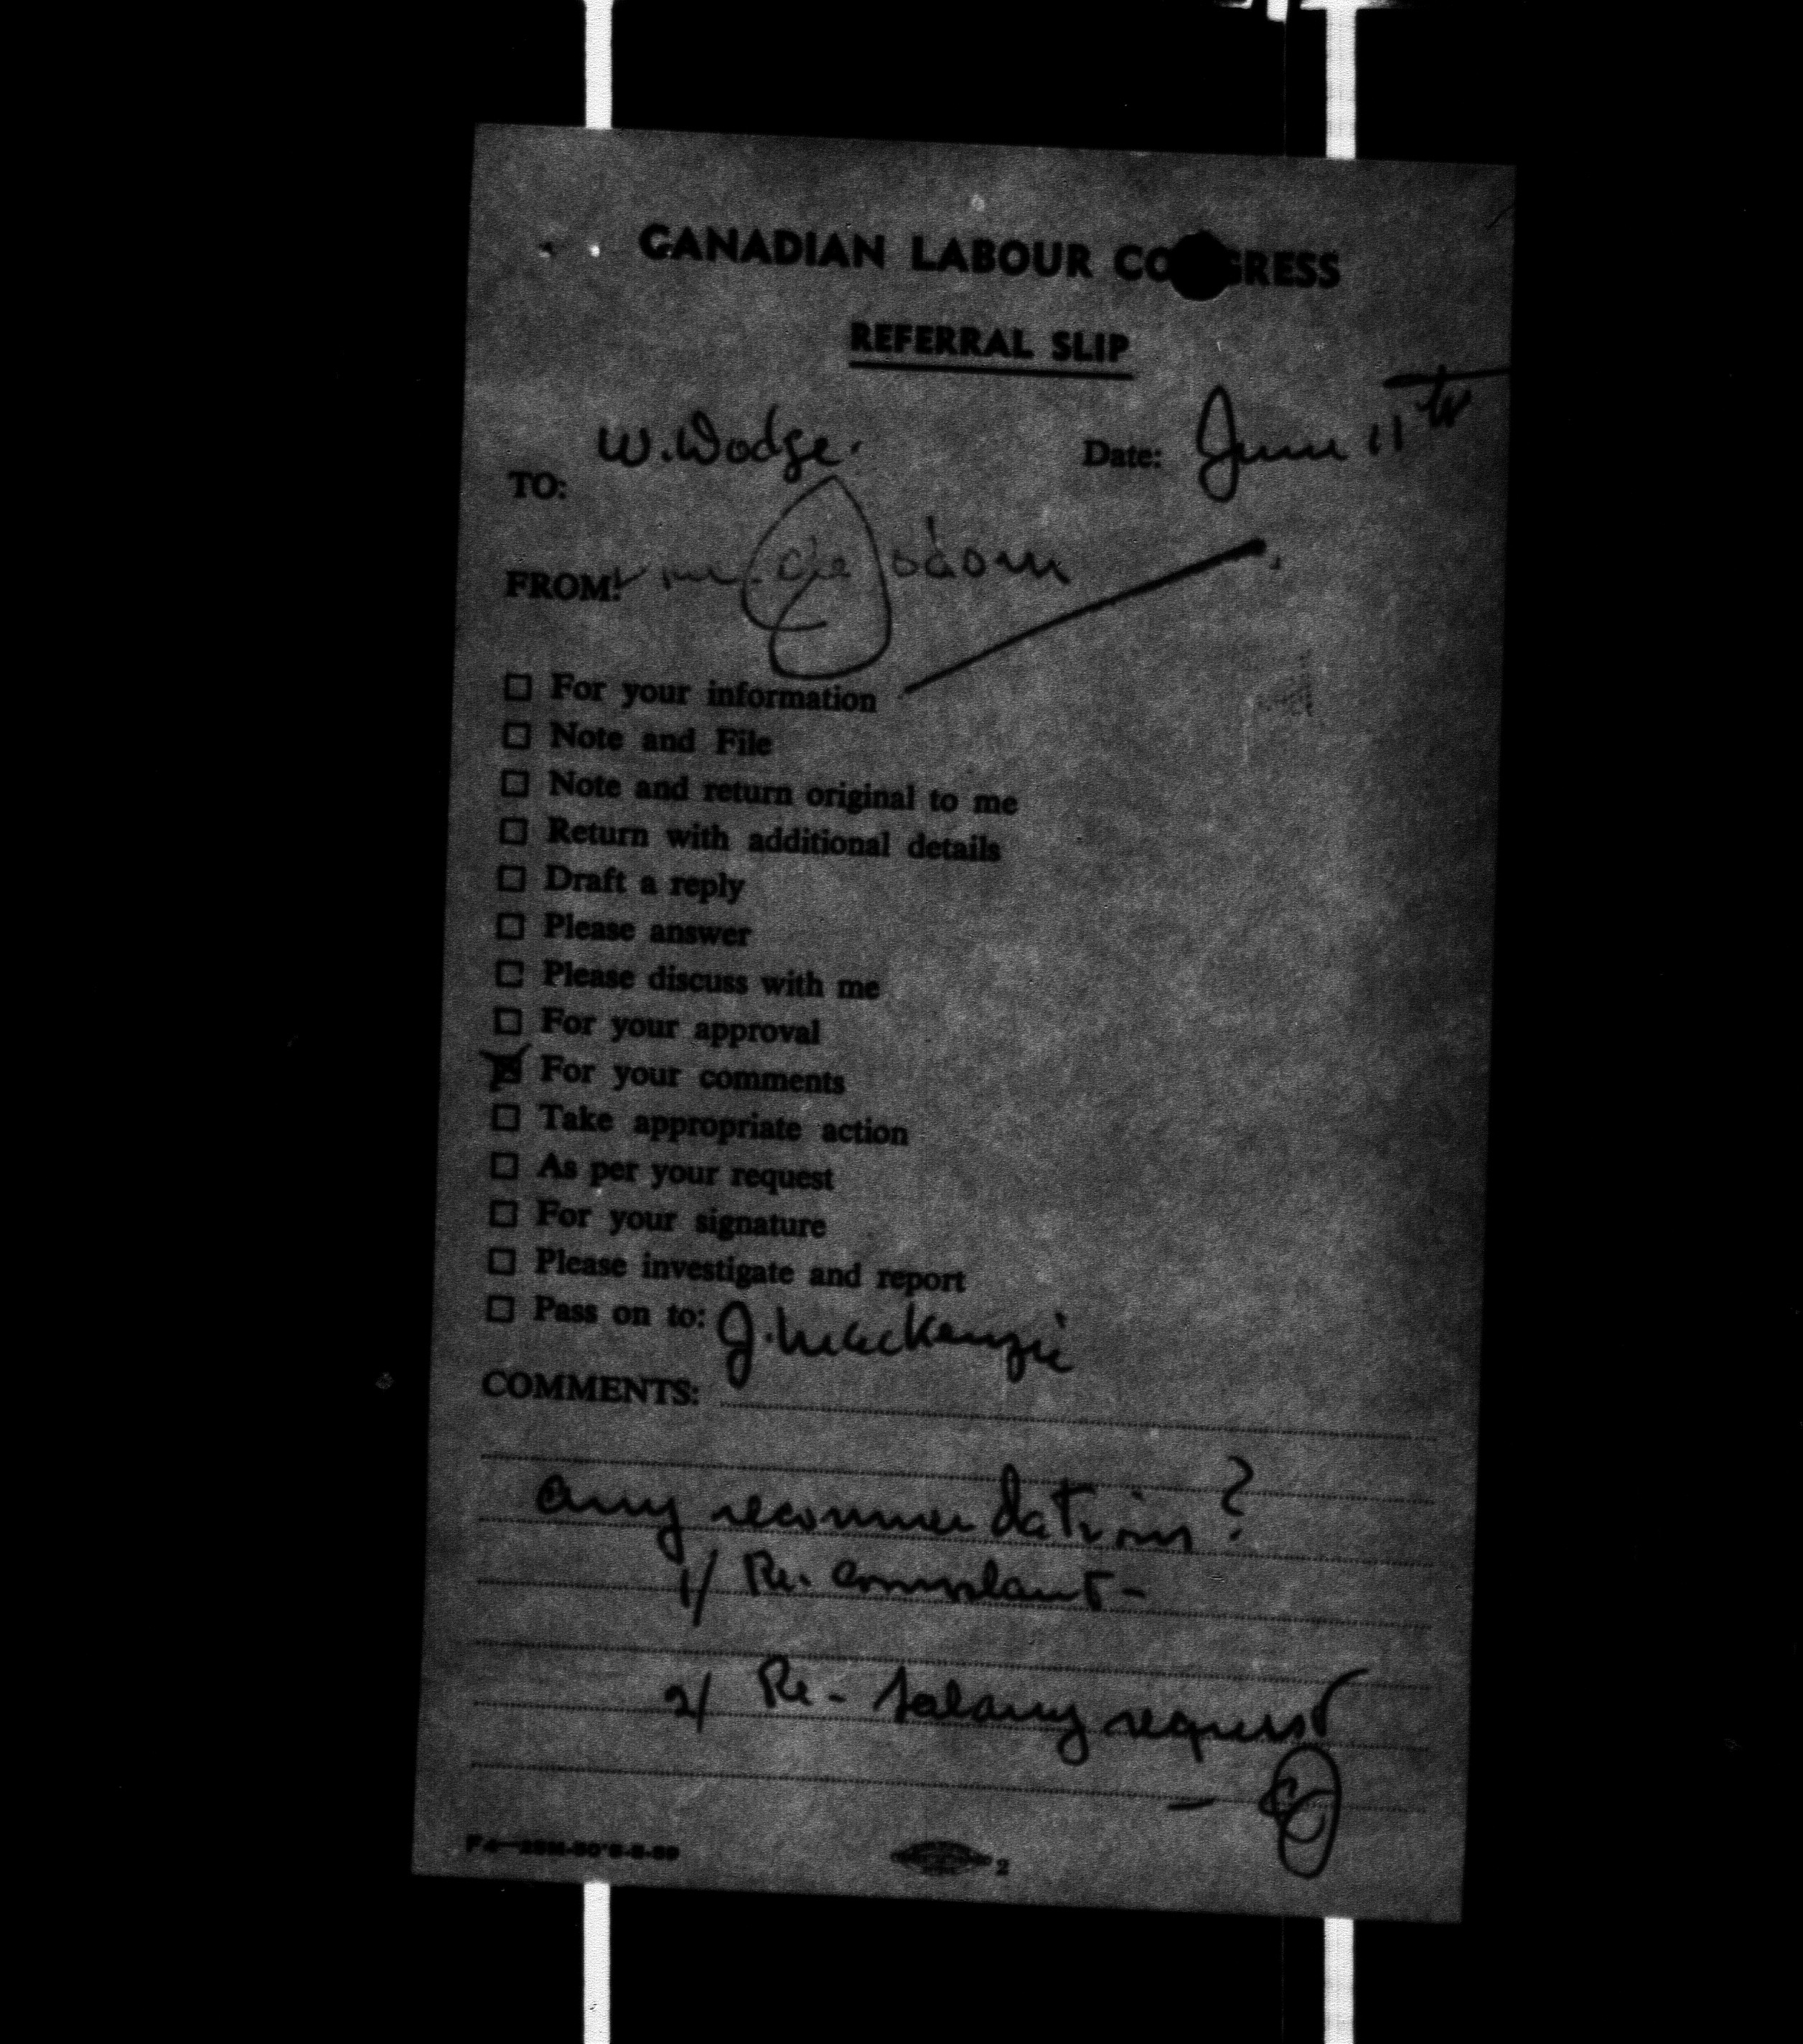 CANADIAN LABOUR CO GRESS
REFERRAL SLIP
TO: W. Dodge.
Date: June 11th
FROM:
☐ For your information
☐ Note and File
☐ Note and return original to me
☐ Return with additional details
☐ Draft a reply
☐ Please answer
☐ Please discuss with me
☐ For your approval
☒ For your comments
☐ Take appropriate action
☐ As per your request
☐ For your signature
☐ Please investigate and report
☐ Pass on to: J. Mackenzie
COMMENTS:
any recommendations?
1/ Re. complaint -
2/ Re - salary request
2